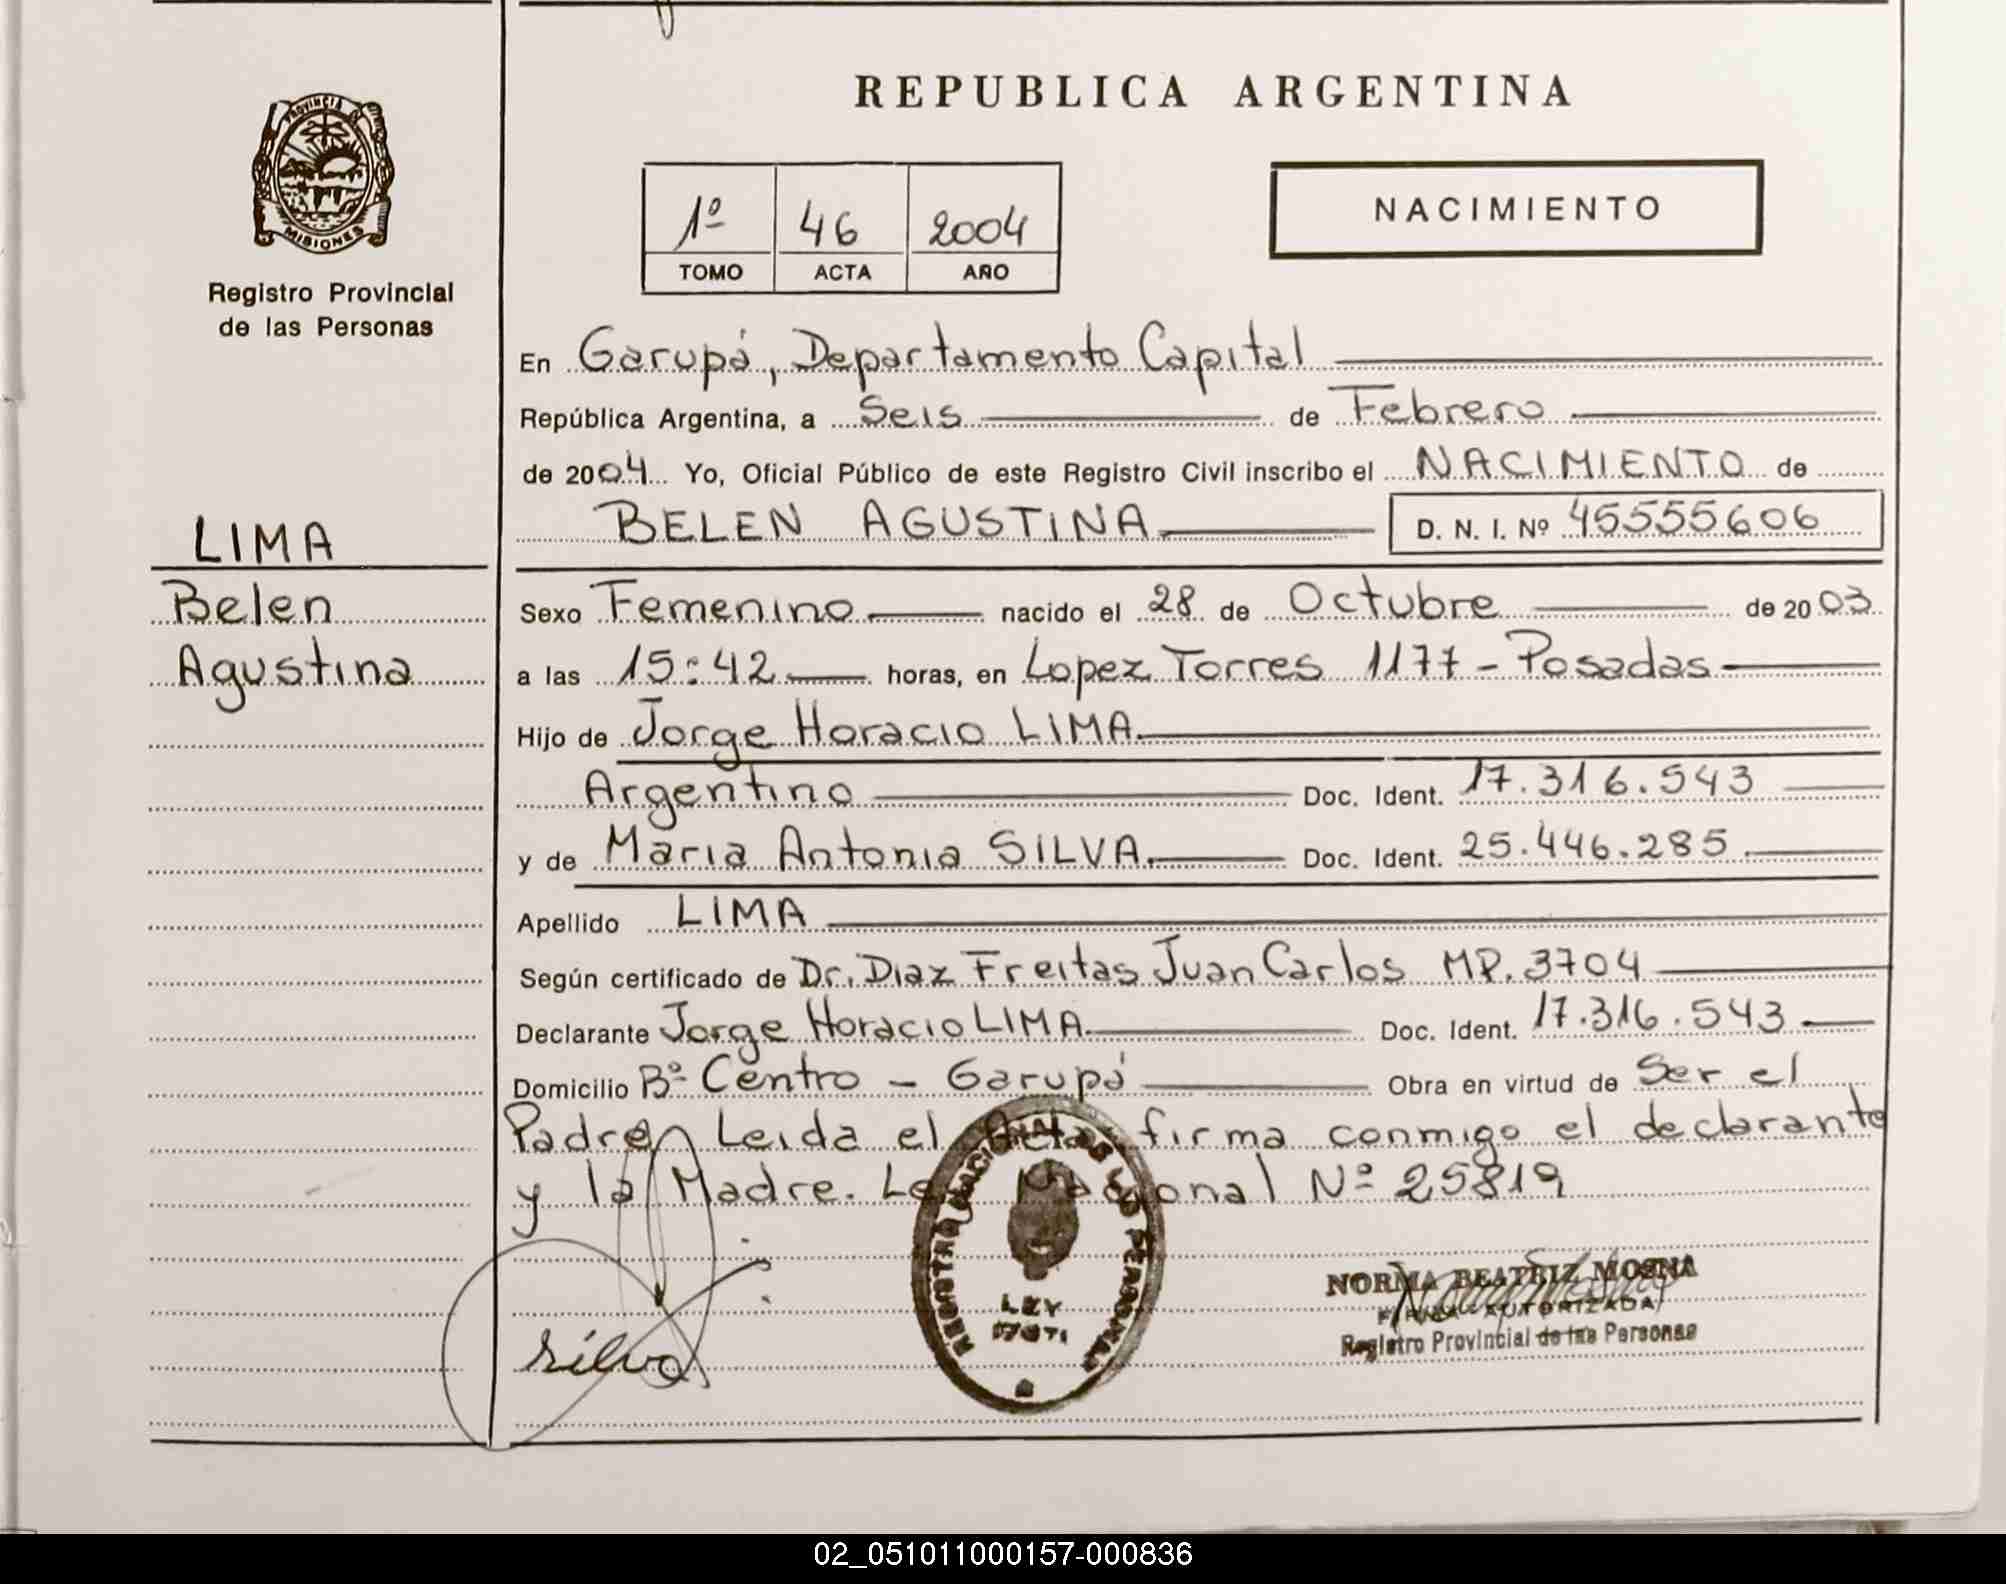 REPUBLICA ARGENTINA
PROVINCIA DE
MISIONES
Registro Provincial
de las Personas
1º 46 2004
TOMO ACTA AÑO
NACIMIENTO
En Garupá, Departamento Capital
República Argentina, a Seis de Febrero
de 2004 Yo, Oficial Público de este Registro Civil inscribo el NACIMIENTO de
BELEN AGUSTINA D. N. I. Nº 45555606
LIMA
Belen
Agustina
Sexo Femenino nacido el 28 de Octubre de 2003
a las 15:42 horas, en Lopez Torres 1177 - Posadas
Hijo de Jorge Horacio LIMA
Argentino Doc. Ident. 17.316.543
y de Maria Antonia SILVA Doc. Ident. 25.446.285
Apellido LIMA
Según certificado de Dr. Diaz Freitas Juan Carlos MP. 3704
Declarante Jorge Horacio LIMA Doc. Ident. 17.316.543
Domicilio Bº Centro - Garupá Obra en virtud de Ser el
Padre Leida el Acta firma conmigo el declarante
y la Madre. Nº 25819
REGISTRO NACIONAL DE LAS PERSONAS
LEY
Silva
NORMA BEATRIZ MOSNA
FIRMA AUTORIZADA
Registro Provincial de las Personas
02_051011000157-000836